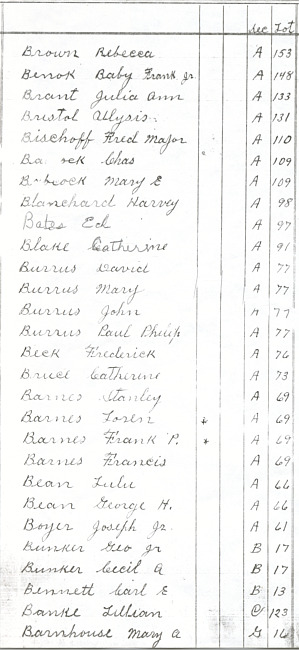 Sec Lot
Brown Rebecca A 153
Benok Baby Frank Jr. A 148
Brant Julia Ann A 133
Bristol Alysis A 131
Bischoff Fred Major A 110
Chas A 109
Mary E A 109
Blanchard Harvey A 98
Bates Ed A 97
Blake Catherine A 91
Burrus David A 77
Burrus Mary A 77
Burrus John A 77
Burrus Paul Philip A 77
Beck Frederick A 76
Bruce Catherine A 73
Barnes Stanley A 69
Barnes Loren * A 69
Barnes Frank P. * A 69
Barnes Francis A 69
Bean Lulu A 66
Bean George H. A 66
Boyer Joseph Jr. A 61
Bunker Geo Jr B 17
Bunker Cecil A B 17
Bennett Carl E B 13
Banke Lillian C 123
Barnhouse Mary A G 16